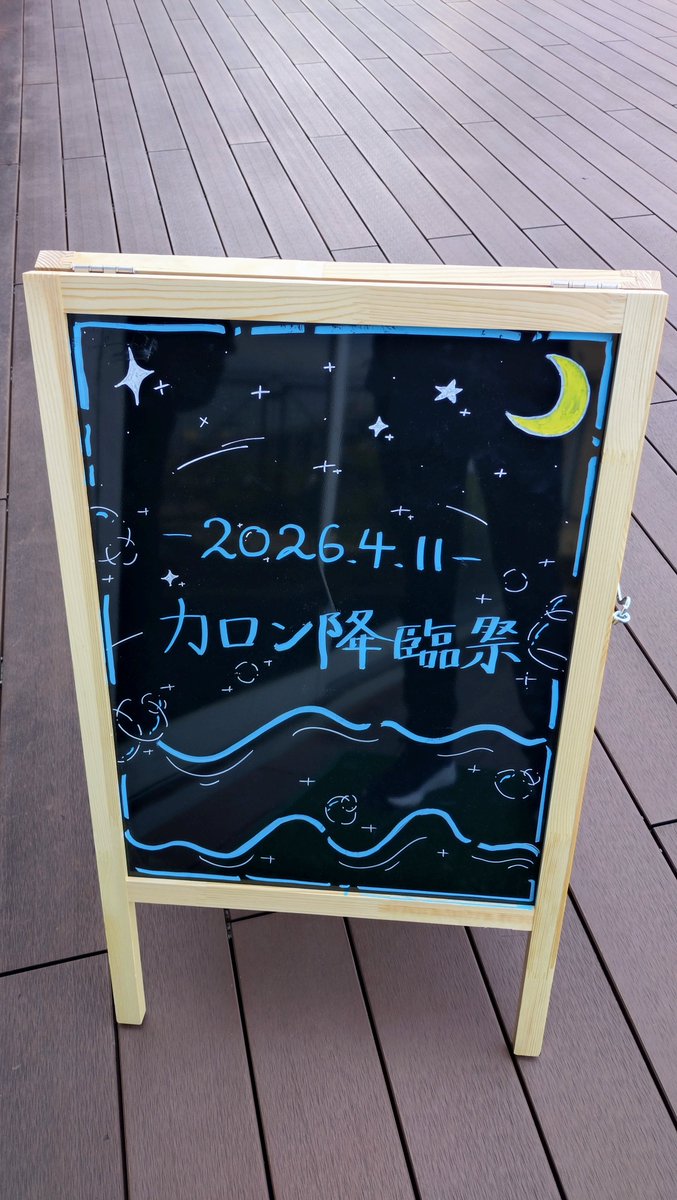 -2026.4.11-
カロン降臨祭